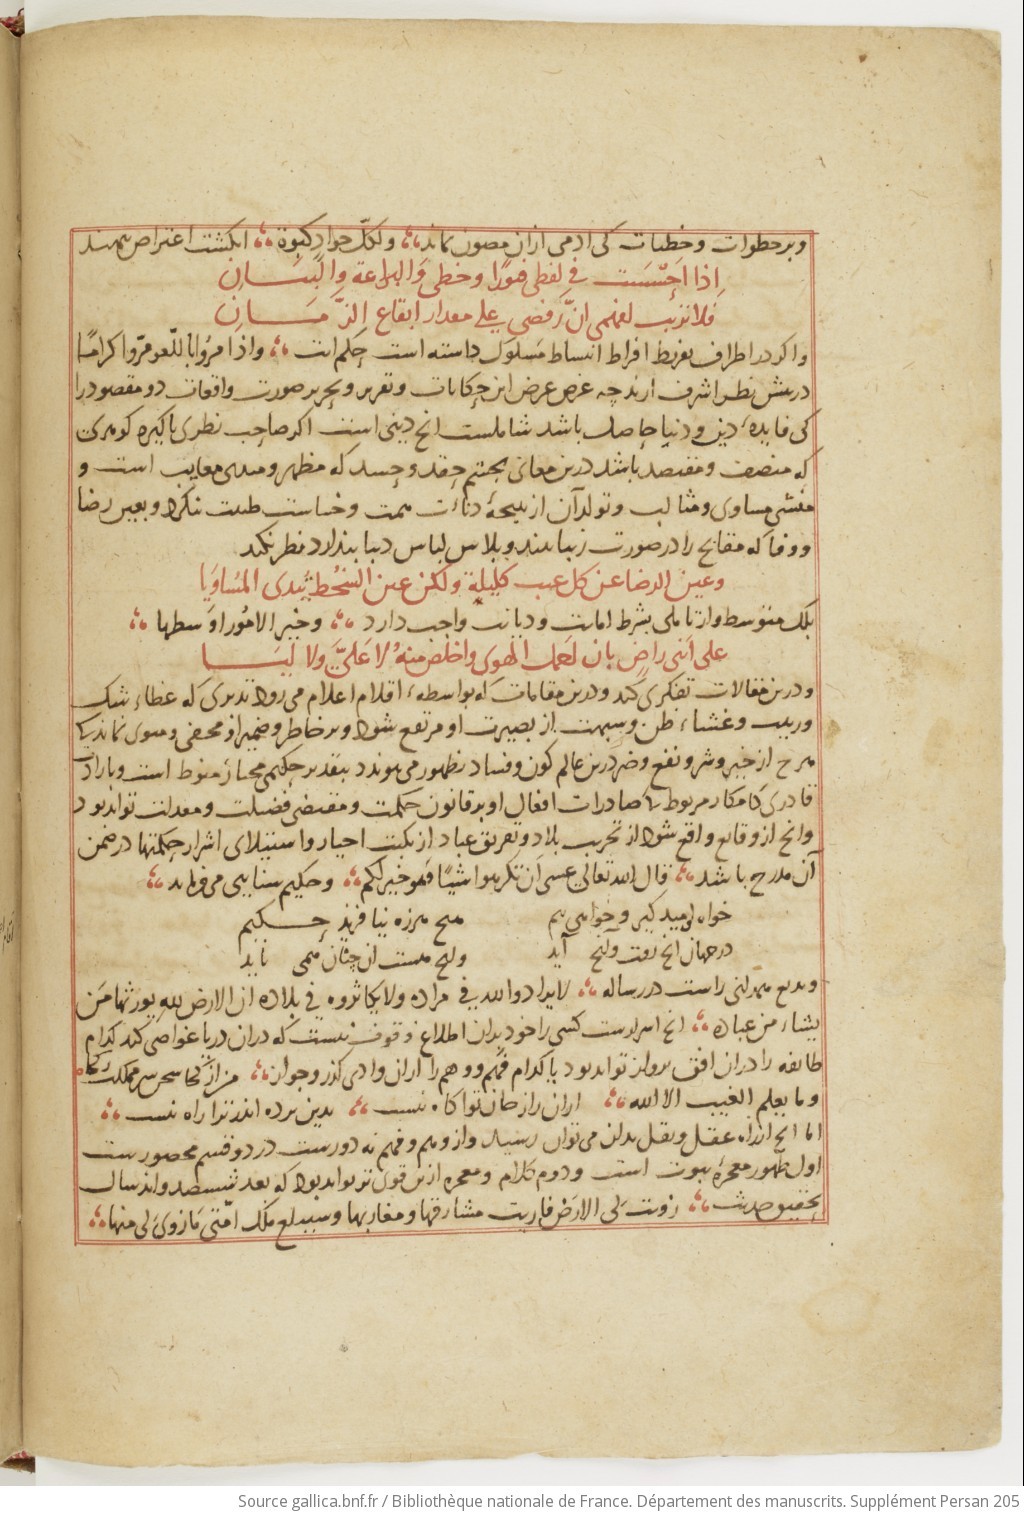 و بر خطوات و خطیات کی ادمی ازان مصون نماند و لکلّ جواد کبوة انکشت اعتراض ننهند
اذا احسست فی لفظی فتورًا و خطی وَ البراعة وِ البَیَانِ
فلا ترتب لفهمی انّ رقصی علی مقدار ایقاع الزّمَانِ
و اکر در اطراف تفریط افراط انبساط مسلوک داشته است حِلم است و اذا مرُوا باللّغو مرّوا کرامًا
در پیش نظر اشرف ارند چه غرض عرض این حکایات و تقریر و تحریر صورت واقعات دو مقصود را
کی فایدهٔ دین و دنیا حاصل باشد شاملست انچ دینی است اکر صاحب نظری پاکیزه کوهری
که منصف و مقتصد باشد درین معانی بچشم حقد و حسد که مظهر و مبدی معایب است و
مفشی مساوی و مثالب و تولد آن از نتیجهٔ دناءت همت و خساست طینت ننکرد و بعین رضا
و وفا که مقابح را در صورت زیبا بیند و پلاس لباس دیبا پندارد نظر نکند
و عین الرضا عن کل عیب کلیلة و لکن عین السّخط تبدی المَساوَیا
بلک متوسط وار تاملی بشرط امانت و دیانت واجب دارد و خیر الامُور اوسَطها
علی اَننی راضٍ بان احمل الهوی و اخلص منهُ لا عَلیَّ و لا لیَا
و درین مقالات تفکری کند و درین مقامات که بواسطهٔ اقلام اعلام می رود تدبری که غطاء شک
و ریب و غشاء ظن و شبهت از بصیرت او مرتفع شود و بر خاطر و ضمیر او مخفی و مستوی نماند که
هرچ از خیر و شر و نفع و ضر درین عالم کون و فساد بظهور می پیوندد بتقدیر حکیمی مختار منوط است و بارادت
قادری کامکار مربوط تا صادرات افعال او بر قانون حکمت و مقتضی فضیلت و معدلت تواند بود
و انچ از وقایع واقع شود از تخریب بلاد و تفریق عباد از نکبت اخیار و استیلای اشرار حکمتها در ضمن
آن مدرج باشد قال الله تعالی عسی اَن تکرهوا شیئًا و هو خیر لکم و حکیم سنایی می فرماید
خواه اومید کیر و خواهی بیم هیچ هرزه نیافرید حکیم
در جهان انچ رفت و انچ آید و انچ هست ان چنان همی باید
و بدیع همدانی راست در رساله لا یراد و الله فی مراده و لا یکاثر فی بلاده ان الارض لله یورثها مَن
یشاء من عباده انچ اسرارست کسی را خود بدان اطلاع و قوف نیست که دران دریا غواصی کند کدام
طایفه را دران افق پرواز تواند بود یا کدام فهم و وهم را ازان وادی کذر و جواز
و ما یعلم الغیب الا الله ازان راز جان تو اکاه نیست بدین پرده اندر ترا راه نیست
اما انچ از راه عقل و نقل بدان می توان رسید و از وهم و فهم نه دورست در دو قسم محصورست
اول ظهور معجزهٔ نبوت است و دوم کلام و معجزه ازین قوی تر تواند بود که بعد ششصد و اند سال
تحقیق حدیث زویت لی الارضَ فاریت مشارقها و مغاربها و سیبلغ ملک امّتی مَا زویَ لی منها
Source gallica.bnf.fr / Bibliothèque nationale de France. Département des manuscrits. Supplément Persan 205